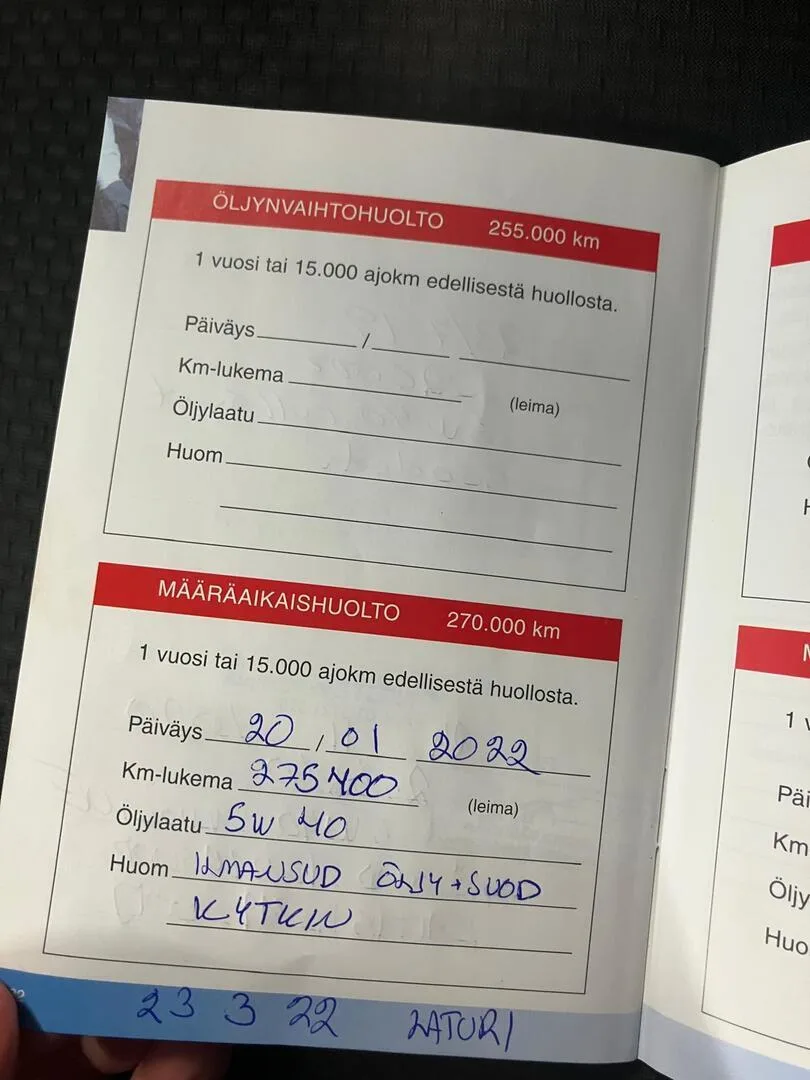 ÖLJYNVAIHTOHUOLTO 255.000 km
1 vuosi tai 15.000 ajokm edellisestä huollosta.
Päiväys / 
Km-lukema
(leima)
Öljylaatu
Huom
MÄÄRÄAIKAISHUOLTO 270.000 km
1 vuosi tai 15.000 ajokm edellisestä huollosta.
Päiväys 20 / 01 2022
Km-lukema 275400
(leima)
Öljylaatu 5W 40
Huom ILMANSUD ÖLJY + SUOD
KYTKIN
23 3 22 LATURI
1 v
Päi
Km
Öljy
Huo